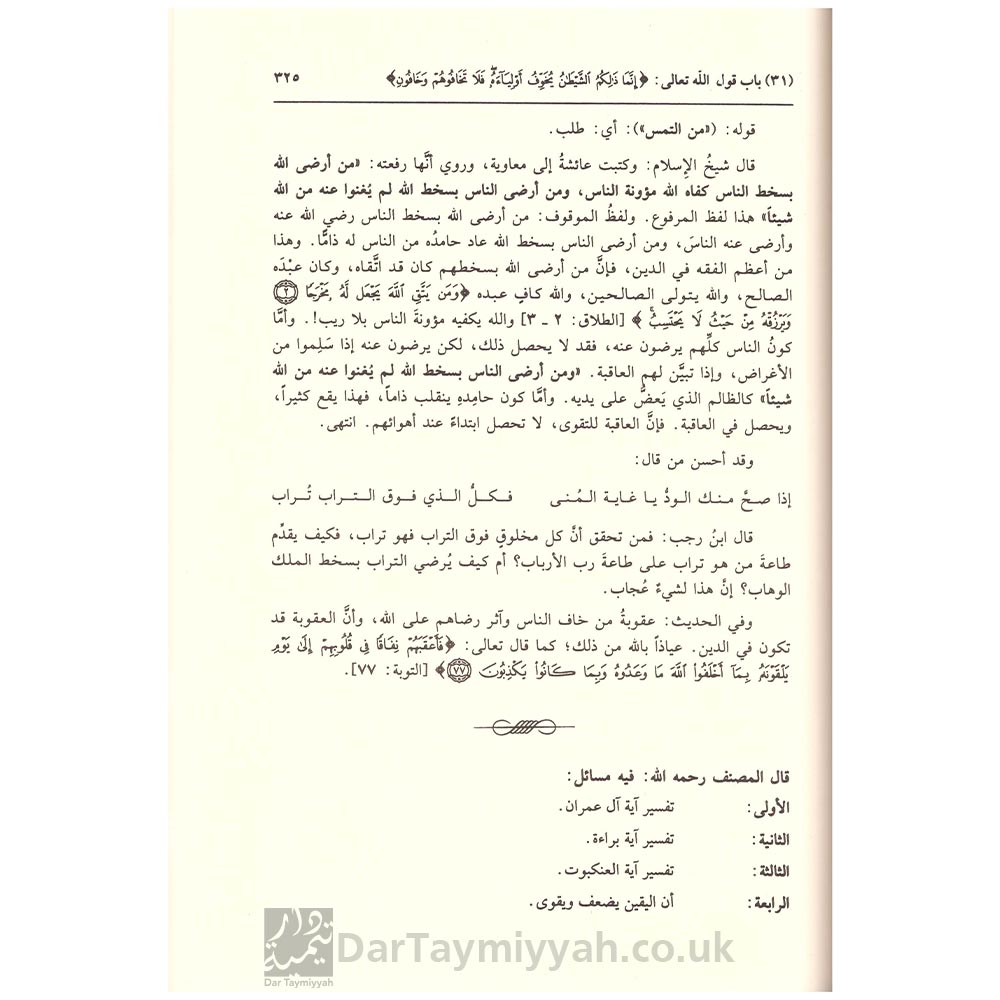 (٣١) باب قول الله تعالى: ﴿إِنَّمَا ذَٰلِكُمُ الشَّيْطَانُ يُخَوِّفُ أَوْلِيَاءَهُۥ فَلَا تَخَافُوهُمْ وَخَافُونِ﴾ ٣٢٥
قوله: («من التمس»): أي: طلب.
قال شيخُ الإسلام: وكتبت عائشةُ إلى معاوية، وروي أنَّها رفعته: «من أرضى الله
بسخط الناس كفاه الله مؤونة الناس، ومن أرضى الناس بسخط الله لم يُغنوا عنه من الله
شيئاً» هذا لفظ المرفوع. ولفظُ الموقوف: من أرضى الله بسخط الناس رضي الله عنه
وأرضى عنه الناسَ، ومن أرضى الناس بسخط الله عاد حامدُه من الناس له ذامًّا. وهذا
من أعظم الفقه في الدين، فإنَّ من أرضى الله بسخطهم كان قد اتَّقاه، وكان عبْدَه
الصالح، والله يتولى الصالحين، والله كافٍ عبده ﴿وَمَن يَتَّقِ اللَّهَ يَجْعَل لَّهُ مَخْرَجًا ۝٢
وَيَرْزُقْهُ مِنْ حَيْثُ لَا يَحْتَسِبُ﴾ [الطلاق: ٢ ـ ٣] والله يكفيه مؤونةَ الناس بلا ريب!. وأمَّا
كونُ الناس كلِّهم يرضون عنه، فقد لا يحصل ذلك، لكن يرضون عنه إذا سَلِموا من
الأغراض، وإذا تبيَّن لهم العاقبة. «ومن أرضى الناس بسخط الله لم يُغنوا عنه من الله
شيئاً» كالظالم الذي يَعضُّ على يديه. وأمَّا كون حامدِهِ ينقلب ذاماً، فهذا يقع كثيراً،
ويحصل في العاقبة. فإنَّ العاقبة للتقوى، لا تحصل ابتداءً عند أهوائهم. انتهى.
وقد أحسن من قال:
إذا صحَّ منك الودُّ يا غاية المُنى فكلُّ الذي فوق التراب تُراب
قال ابنُ رجب: فمن تحقق أنَّ كل مخلوقٍ فوق التراب فهو تراب، فكيف يقدِّم
طاعةَ من هو تراب على طاعةَ رب الأرباب؟ أم كيف يُرضي التراب بسخط الملك
الوهاب؟ إنَّ هذا لشيءٌ عُجاب.
وفي الحديث: عقوبةُ من خاف الناس وآثر رضاهم على الله، وأنَّ العقوبة قد
تكون في الدين. عياذاً بالله من ذلك؛ كما قال تعالى: ﴿فَأَعْقَبَهُمْ نِفَاقًا فِي قُلُوبِهِمْ إِلَىٰ يَوْمِ
يَلْقَوْنَهُۥ بِمَا أَخْلَفُوا اللَّهَ مَا وَعَدُوهُ وَبِمَا كَانُوا يَكْذِبُونَ ۝٧٧﴾ [التوبة: ٧٧].
قال المصنف رحمه الله: فيه مسائل:
الأولى: تفسير آية آل عمران.
الثانية: تفسير آية براءة.
الثالثة: تفسير آية العنكبوت.
الرابعة: أن اليقين يضعف ويقوى.
دار تيمية
Dar Taymiyyah
DarTaymiyyah.co.uk